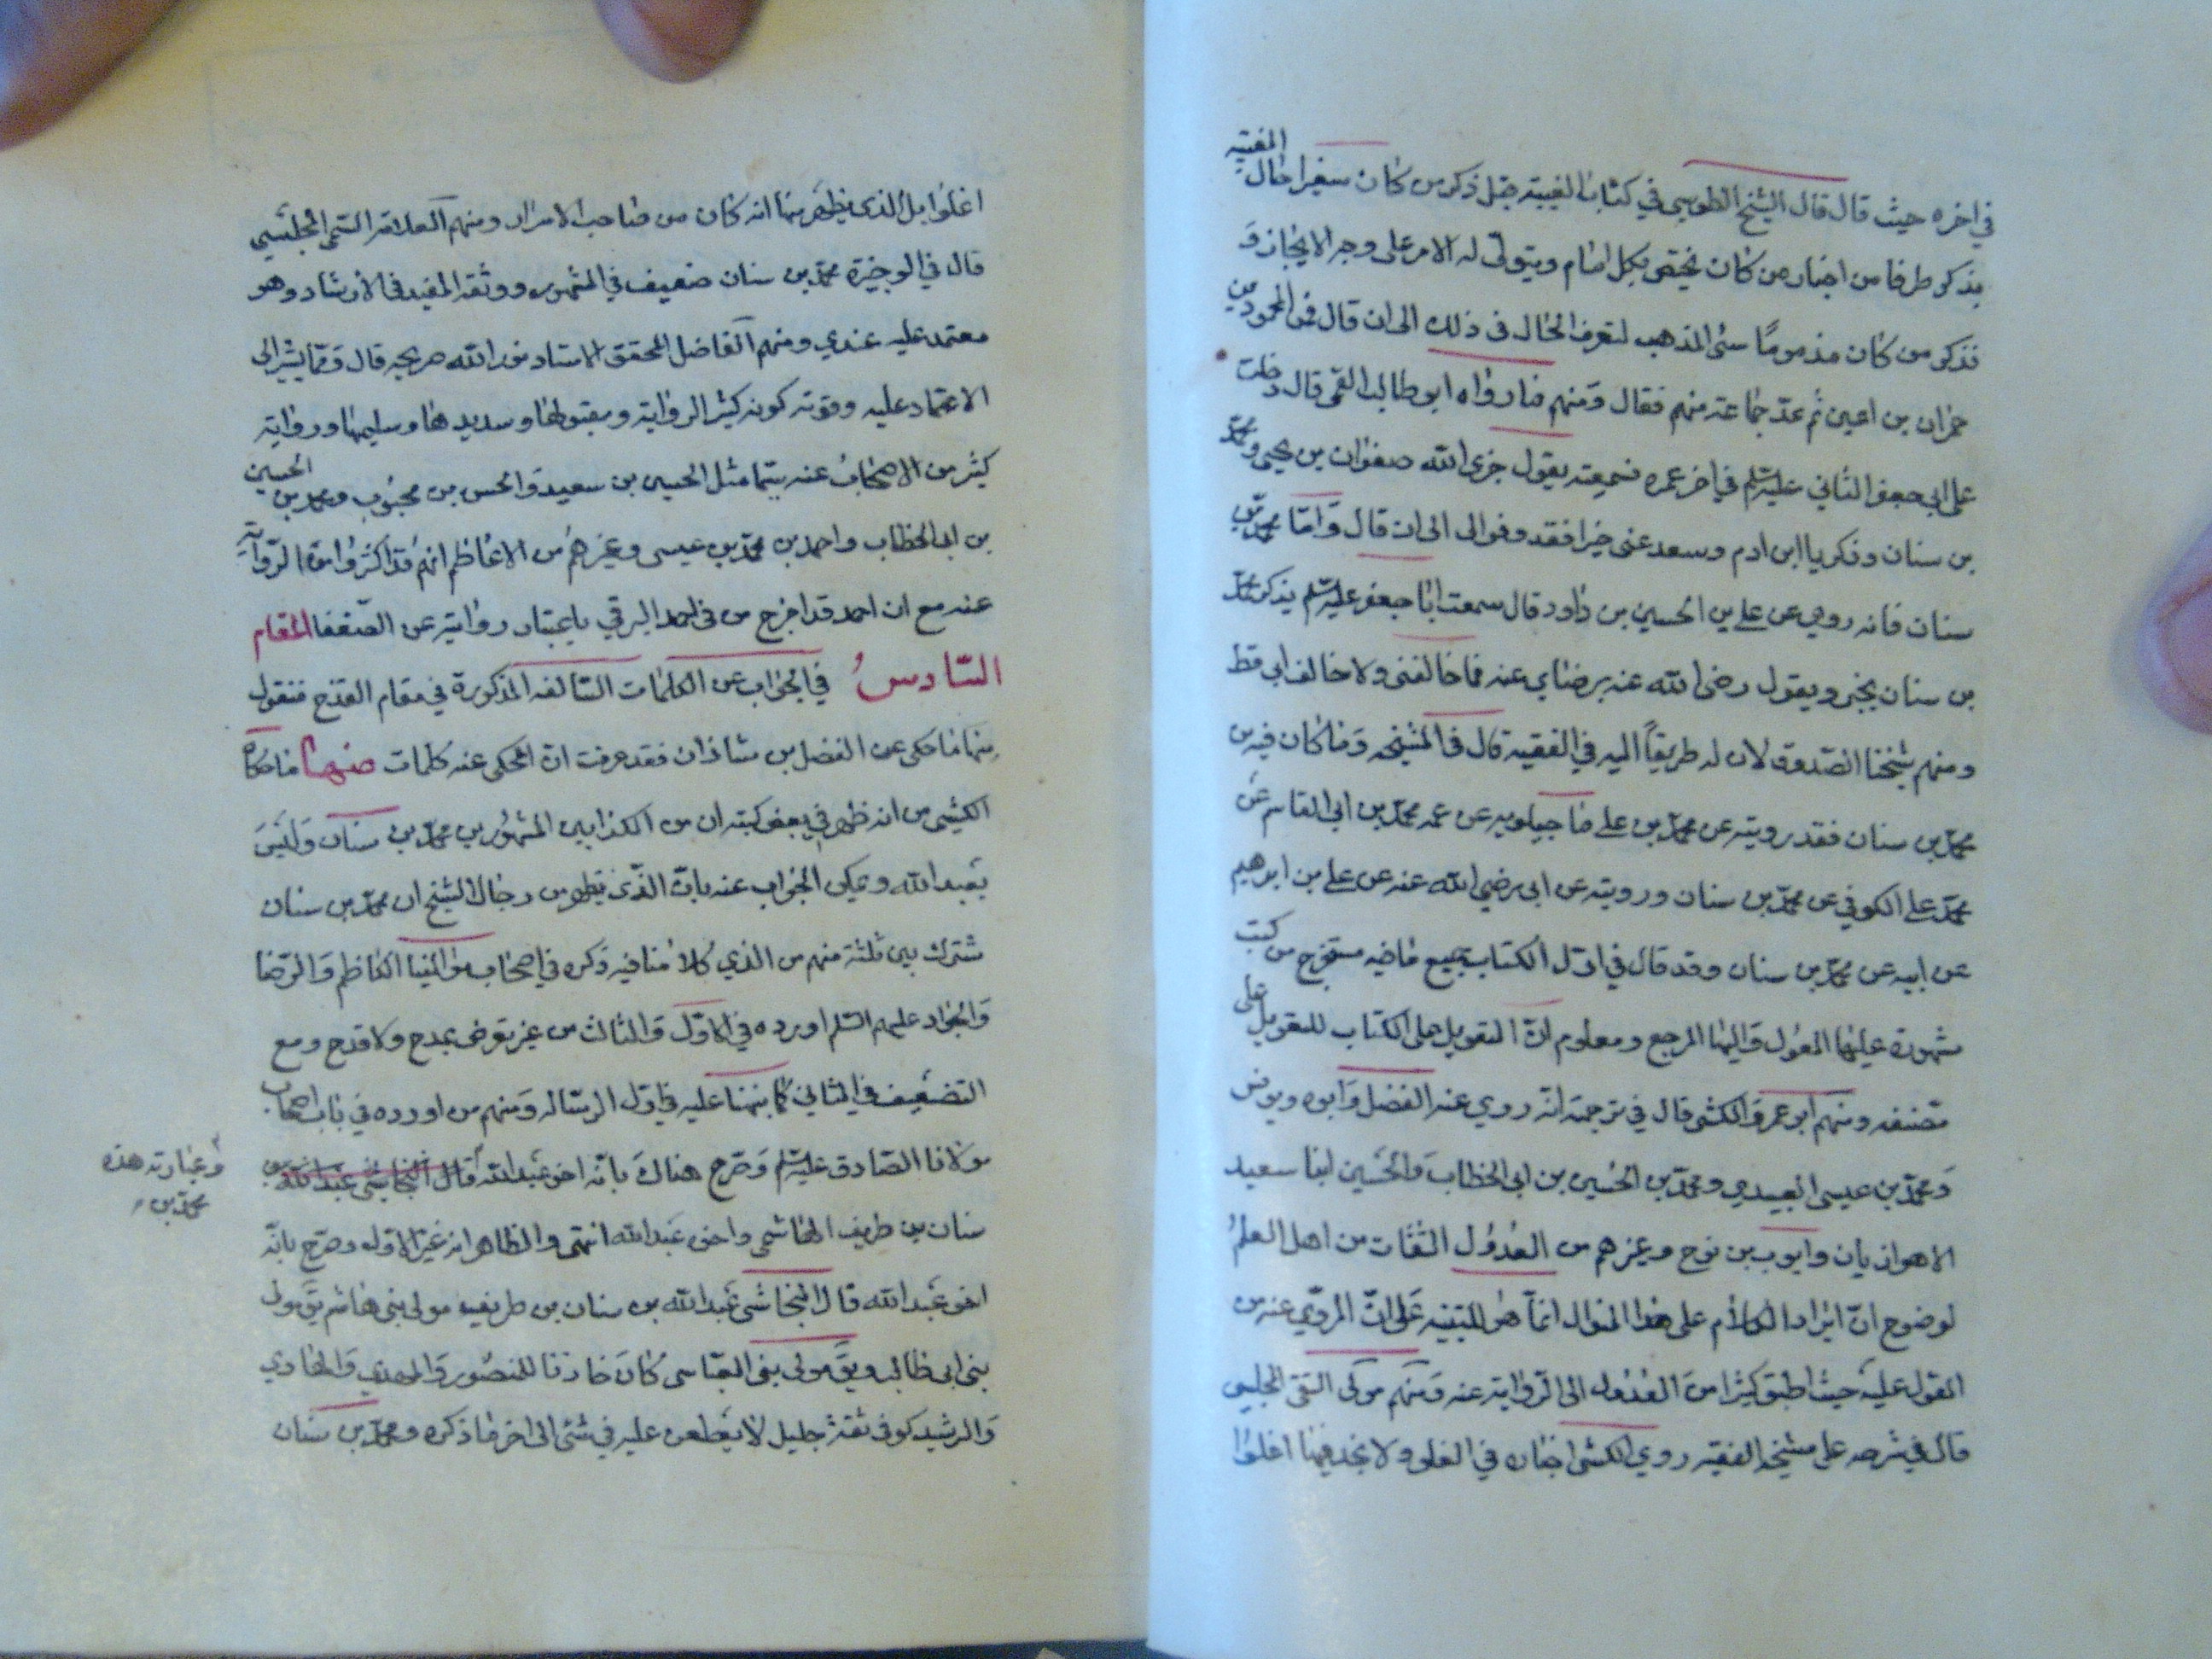 في اخره حيث قال قال الشيخ الطوسي في كتاب الغيبة قبل ذكر من كان سفيرا حال الغيبة
نذكر طرفا من اخبار من كان يختص بكل امام ويتولى له الامر على وجه الايجاز و
نذكر من كان مذموما سئ المذهب لتعرف الحال في ذلك الى ان قال فمن المحمودين
حمران بن اعين ثم عد جماعة منهم فقال ومنهم ما رواه ابو طالب القمي قال دخلت
على ابي جعفر الثاني عليه السلم في اخر عمره فسمعته يقول جزى الله صفوان بن يحيى ومحمد
بن سنان وزكريا ابن ادم وسعد عني خيرا فقد وفوا لي الى ان قال واما محمد بن
سنان فانه روي عن علي بن الحسين بن داود قال سمعت ابا جعفر عليه السلم يذكر محمد
بن سنان بخير ويقول رضى الله عنه برضاي عنه فما خالفني ولا خالف ابي قط
ومنهم شيخنا الصدوق لان له طريقا اليه في الفقيه قال في المشيخه وما كان فيه من
محمد بن سنان فقد رويته عن محمد بن علي ماجيلويه عن عمه محمد بن ابي القاسم عن
محمد علي الكوفي عن محمد بن سنان ورويته عن ابي رضي الله عنه عن علي بن ابرهيم
عن ابيه عن محمد بن سنان وقد قال في اول الكتاب جميع ما فيه مستخرج من كتب
مشهورة عليها المعول واليها المرجع ومعلوم ان التعويل على الكتاب للتعويل على
مصنفه ومنهم ابو عمرو الكشي قال في ترجمته انه روي عنه الفضل وابوه ويونس
ومحمد بن عيسى العبيدي ومحمد بن الحسين بن ابي الخطاب والحسين ابنا سعيد
الاهوازيان وايوب بن نوح وغيرهم من العدول الثقات من اهل العلم
لوضوح ان ايراد الكلام على هذا المنوال انما هو للتنبيه على ان المروي عنه من
المعول عليه حيث اطبق كثيرا من العدول الى الرواية عنه ومنهم مولى التقي المجلسي
قال في شرحه على مشيخة الفقيه روي الكشي اخباره في الغلو ولا نجد فيها اغلوا
اغلوا بل الذي يظهر منها انه كان من صاحب الاسرار ومنهم العلامة السمي المجلسي
قال في الوجيزة محمد بن سنان ضعيف في المشهور ووثقه المفيد في الارشاد وهو
معتمد عليه عندي ومنهم الفاضل المحقق الاستاد نور الله ضريحه قال ومما يشير الى
الاعتماد عليه وقوته كونه كثير الرواية ومقبولها وسديدها وسليمها ورواية
كثير من الاصحاب عنه سيما مثل الحسين بن سعيد والحسن بن محبوب ومحمد بن الحسين
بن ابي الخطاب واحمد بن محمد بن عيسى وغيرهم من الاعاظم انهم قد اكثروا من الرواية
عنه مع ان احمد قد اخرج من قم احمد البرقي باعتبار روايته عن الضعفا المقام
السادس في الجواب عن الكلمات السالفه المذكورة في مقام القدح فنقول
منها ما حكى عن الفضل بن شاذان فقد عرفت ان المحكى عنه كلمات منها ما حكاه
الكشي من انه ظهر في بعض كتبه ان من الكذابين المشهورين محمد بن سنان وليس
بعبد الله ويمكن الجواب عنه بان الذي يظهر من رجال الشيخ ان محمد بن سنان
مشترك بين ثلثة منهم من الذي كلامنا فيه ذكره في اصحاب موالينا الكاظم والرضا
والجواد عليهم السلم اورده في الاول والثالث من غير تعرض بمدح ولا قدح ومع
التضعيف في الثاني كما نبهنا عليه في اول الرسالة ومنهم من اورده في باب اصحاب
مولانا الصادق عليه السلم وصرح هناك بانه اخو عبد الله قال النجاشي عبد الله بن
وعبارته هذه
محمد بن
سنان بن طريف الهاشمي واخى عبد الله انتهى والظاهر انه غير الاول وصرح بانه
اخو عبد الله قال النجاشي عبد الله بن سنان بن طريف مولى بني هاشم يق مولى
بني ابي طالب ويق مولى بني العباس كان خازنا للمنصور والمهدي والهادي
والرشيد كوفي ثقة جليل لا يطعن عليه في شئ الى اخر ما ذكره ومحمد بن سنان